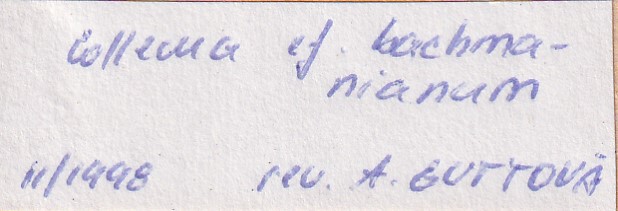 Collema cf. bachma-
nianum
11/1998 rev. A. GUTTOVÁ